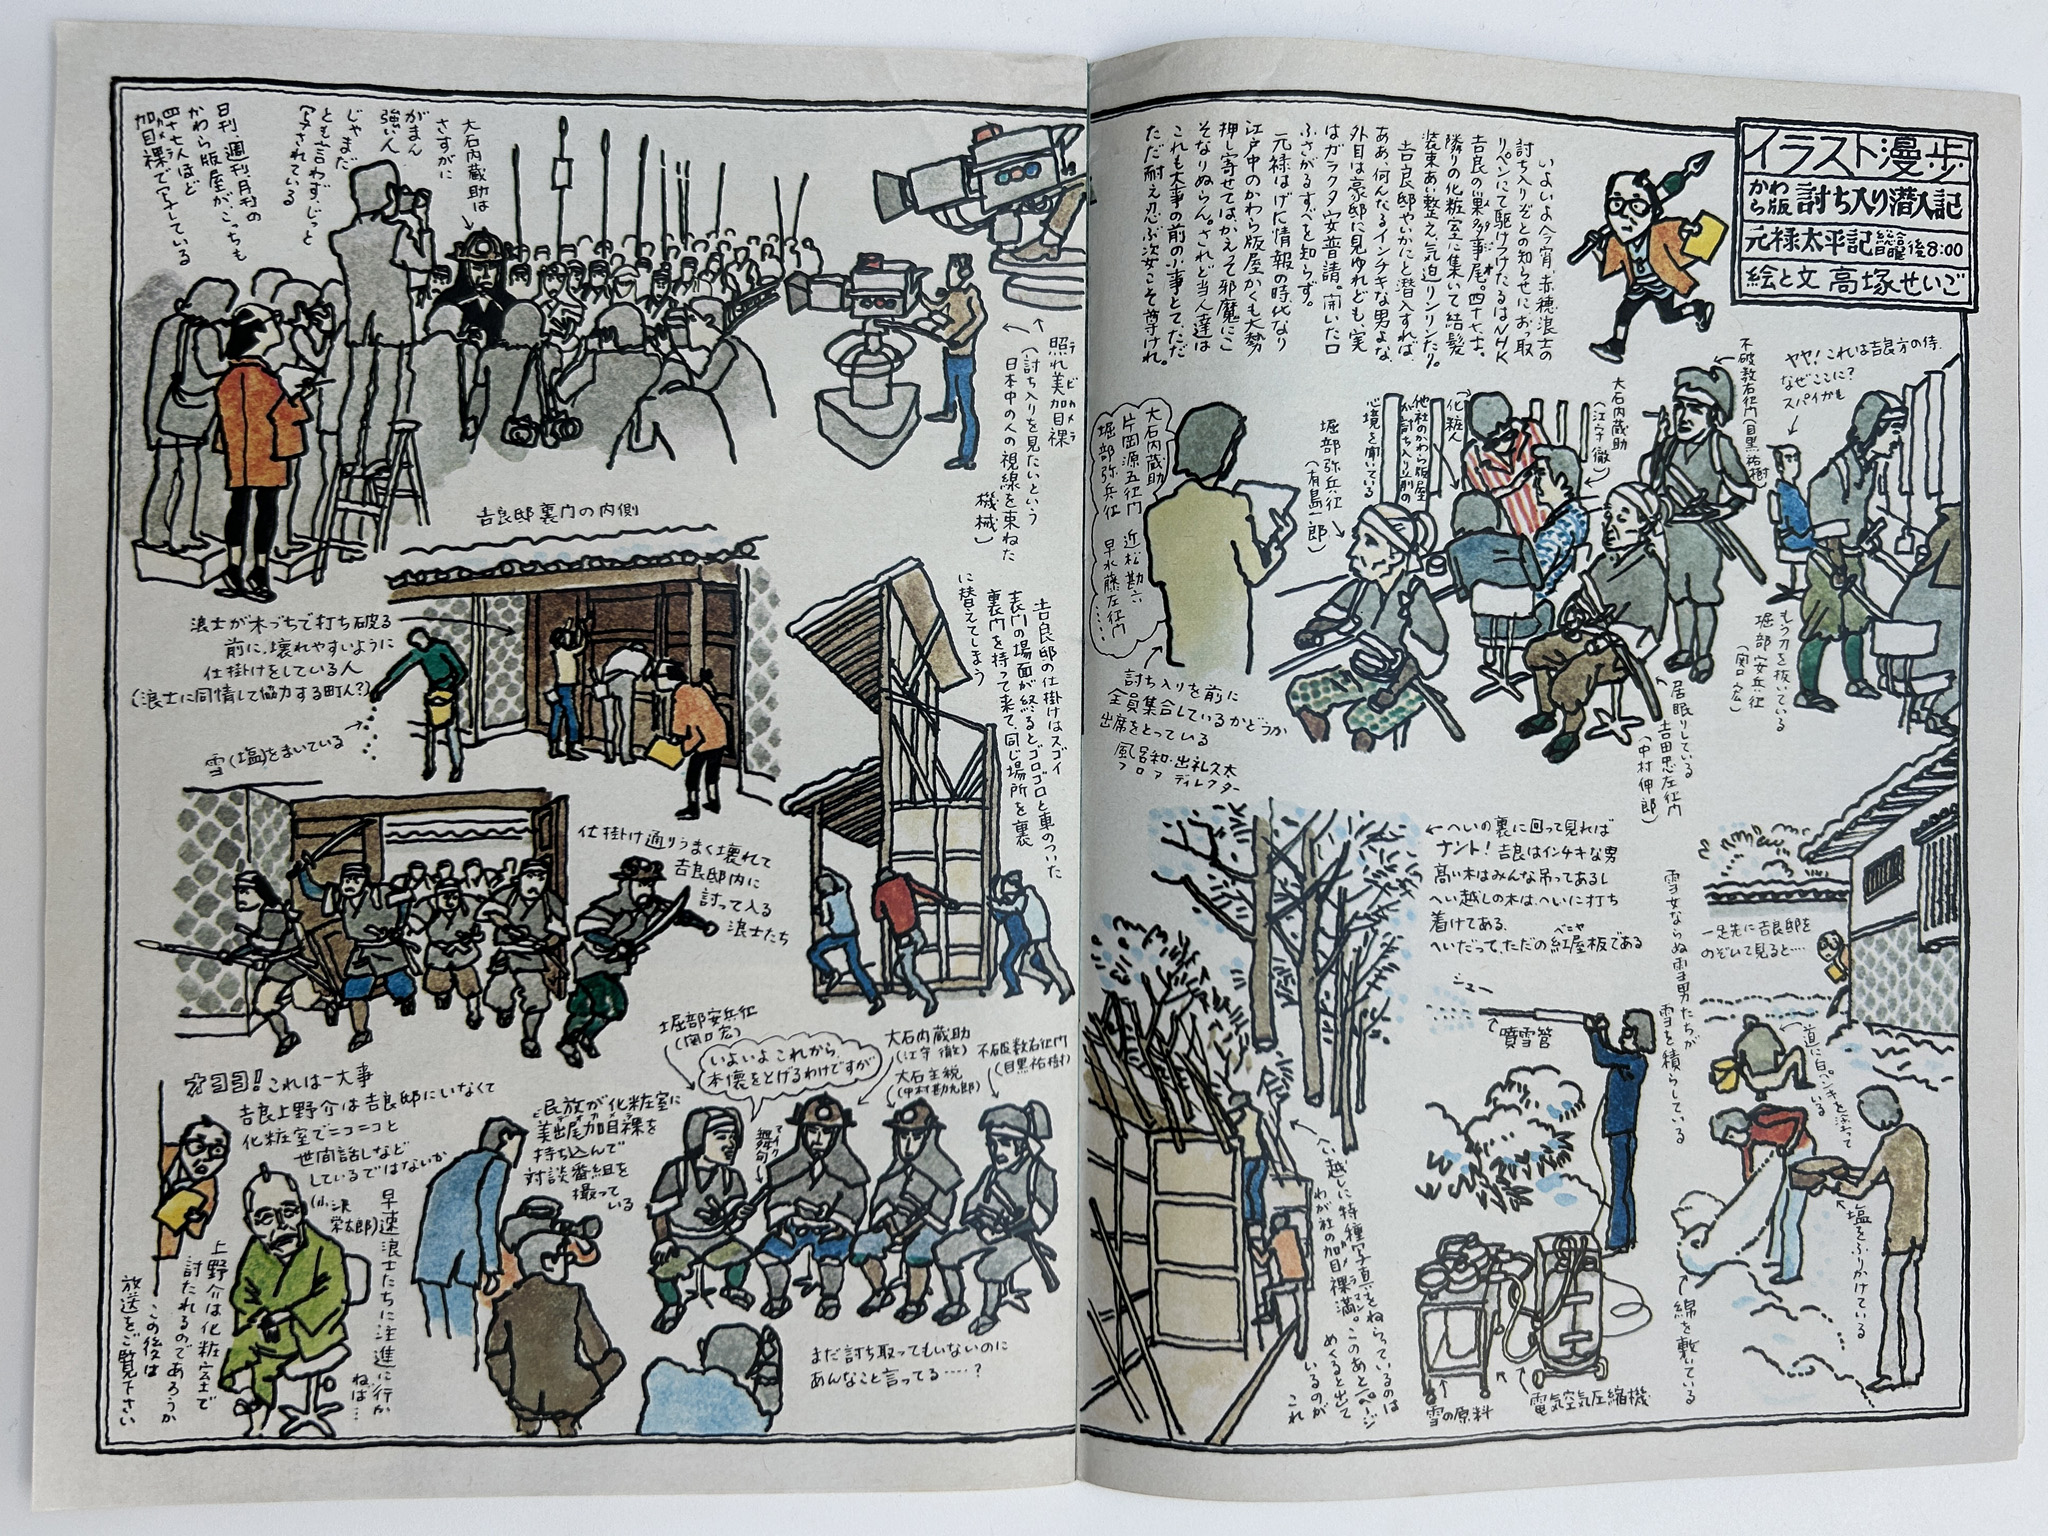 イラスト漫歩
かわら版 討ち入り潜入記
元禄太平記 総合 日曜 後8:00
絵と文 高塚せいご
いよいよ今宵、赤穂浪士の
討ち入りぞとの知らせに、おっ取
りペンにて駆けつけたるはNHK
吉良の巣多事尾。四十七士。
隣りの化粧室に集いて結髪
装束あい整え、気迫リンリンたり。
吉良邸やいかにと潜入すれば、
ああ、何んたるインチキな男よな、
外目は豪邸に見ゆれども、実
はガラクタ安普請。開いた口
ふさがるすべを知らず。
元禄はげに情報の時代なり
江戸中のかわら版屋かくも大勢
押し寄せては、かえって邪魔にこ
そなりぬらん。されど当人達は
これも大事の前の小事とて、ただ
ただ耐え忍ぶ姿こそ尊けれ。
ヤヤ!これは吉良方の侍
なぜここに?
スパイかも
不破数右衛門(目黒祐樹)
大石内蔵助
(江守徹)
化粧人
他社のかわら版屋
が討ち入り直前の
心境を聞いている
堀部弥兵衛
(有島一郎)
大石内蔵助
片岡源五右衛門 近松勘六
堀部弥兵衛 早水藤左衛門……
討ち入りを前に
全員集合しているかどうか
出席をとっている
風呂和・出礼久太
フロア ディレクター
もう刀を抜いている
堀部安兵衛
(関口宏)
居眠りしている
吉田忠左衛門
(中村伸郎)
へいの裏に回って見れば
ナント!吉良はインチキな男
高い木はみんな吊ってあるし
へい越しの木は、へいに打ち
着けてある。
へいだって、ただの紅屋板である
ベニヤ
一足先に吉良邸を
のぞいて見ると…
雪女ならぬ雪男たちが
雪を積らしている
シュー
噴雪管
道に白ペンキを塗って
いる
塩をふりかけている
綿を敷いている
雪の原料
電気空気圧縮機
へい越しに特種写真をねらっているのは
わが社の加目裸満。このあと一ページ
カメラマン
めくると出て
いるのが
これ
大石内蔵助は
さすがに
がまん
強い人
じゃまだ
とも言わず、じっと
写されている
日刊・週刊月刊の
かわら版屋が、こっちも
四十七人ほど
加目裸で写している
カメラ
照れ美加目裸
テレビカメラ
(討ち入りを見たいという
日本中の人の視線を束ねた
機械)
吉良邸裏門の内側
浪士が木づちで打ち破る
前に、壊れやすいように
仕掛けをしている人
(浪士に同情して協力する町人?)
雪(塩)をまいている
吉良邸の仕掛けはスゴイ
表門の場面が終るとゴロゴロと車のついた
裏門を持って来て、同じ場所を裏
に替えてしまう
仕掛け通りうまく壊れて
吉良邸内に
討って入る
浪士たち
オヨヨ!これは一大事
吉良上野介は吉良邸にいなくて
化粧室でニコニコと
世間話しなど
しているではないか
(小沢
栄太郎)
早速浪士たちに注進に行か
ねば…
上野介は化粧室で
討たれるのであろうか
この後は
放送をご覧下さい
民放が化粧室に
美出尾加目裸を
ビデオカメラ
持ち込んで
対談番組を
撮って
いる
堀部安兵衛
(関口宏)
いよいよこれから
本懐をとげるわけですが
舞句
マイク
大石内蔵助
(江守徹)
大石主税
(中村勘九郎)
不破数右衛門
(目黒祐樹)
まだ討ち取ってもいないのに
あんなこと言ってる……?